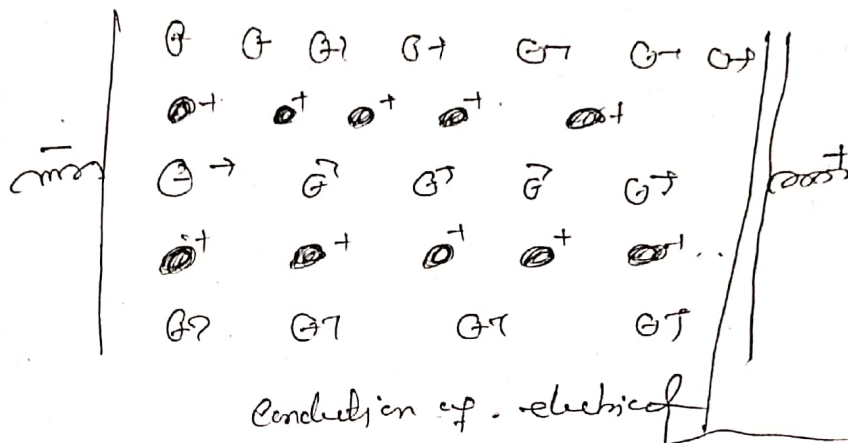 ⊖ ⊖ ⊖→ ⊖→ ⊖→ ⊖→ ⊖→
+ + + + +
-
⊖→ ⊖→ ⊖→ ⊖→ ⊖→
+
+ + + + + ..
⊖→ ⊖→ ⊖→ ⊖→
Conduction of. electrical